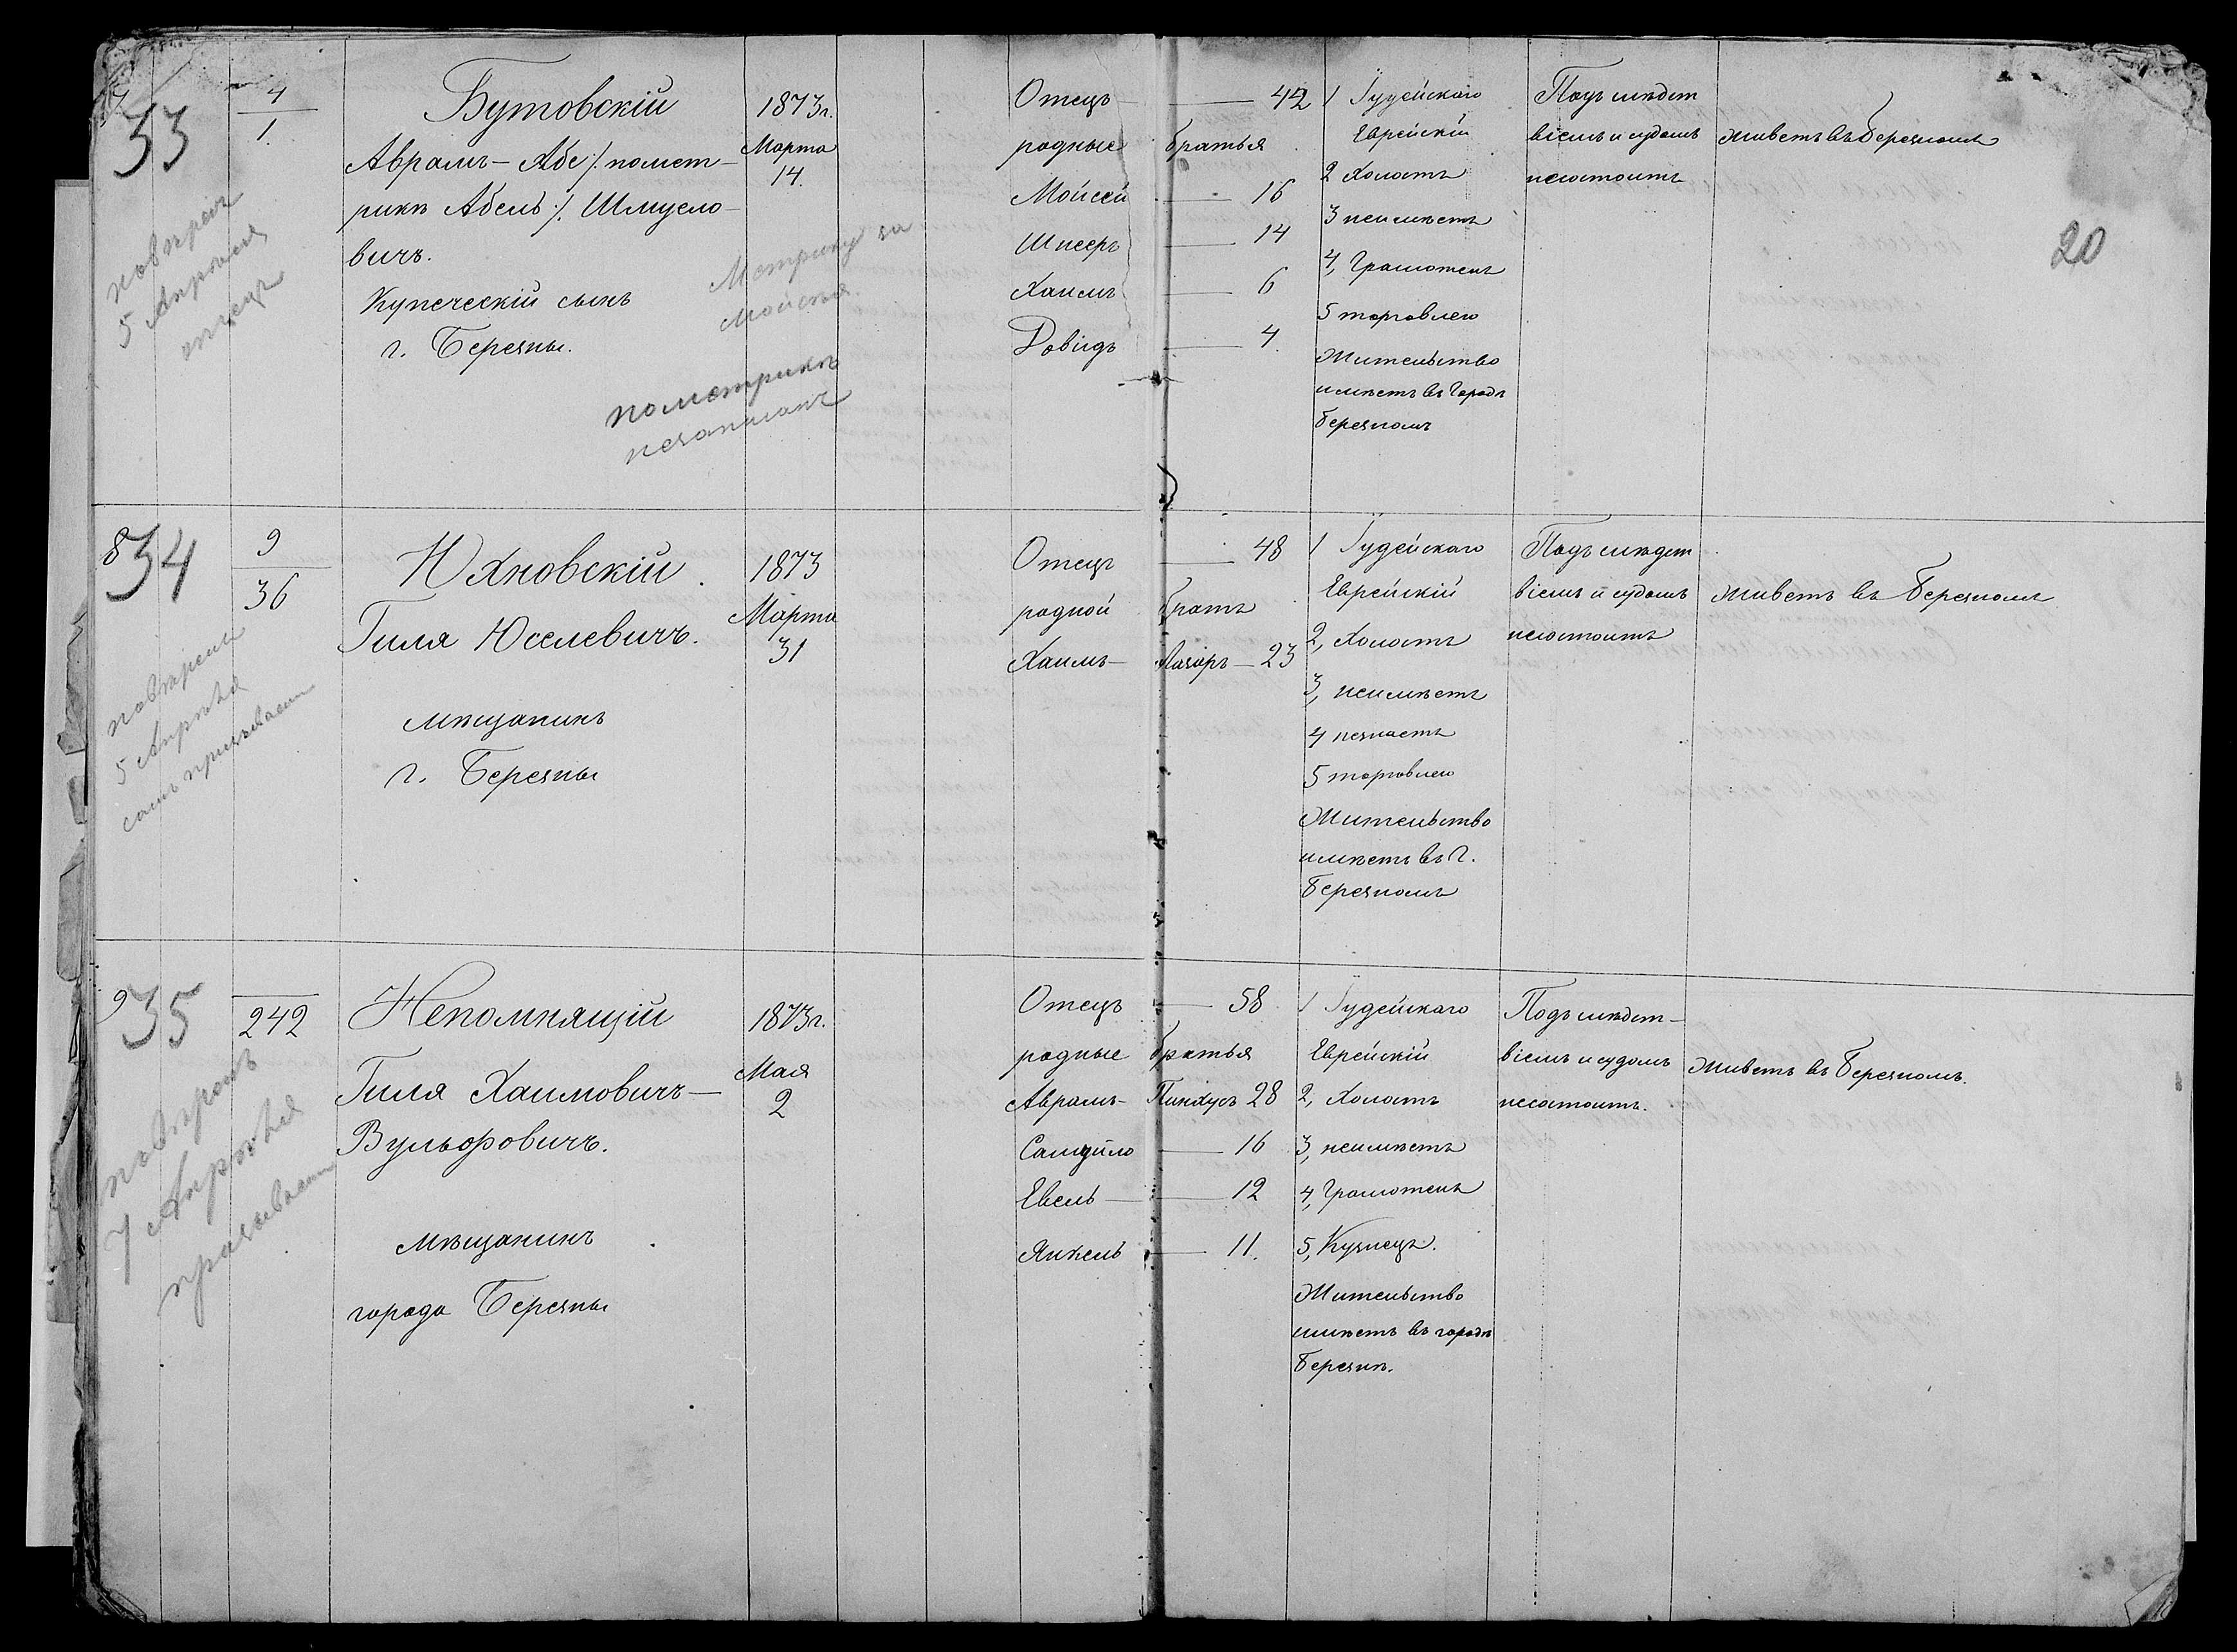 7
33
4
1
Бутовскій
Аврамъ-Абе /. помет-
рикѣ Абель ./ Шмуело-
вичъ.
Купеческій сынъ
г. Березны.
1873г.
Марта
14.
Отецъ — 42
родные братья
Мойсей — 16
14
Хаимъ — 6
Довидъ — 4
1 Іудейскаго
Еврейскій
2 Холостъ
3 неимѣетъ
4, Грамотенъ
5 торговлею
Жительство
имѣетъ въ Городѣ
Березномъ
Подъ слѣдст
віемъ и судомъ
несостоитъ
живетъ въ Березномъ
20
5 Апрѣля
отецъ
Метрику на
Мойсея.
пометрикѣ
незаписанъ
8
34
9
36
Юхновскій
Гиля Юселевичъ.
мѣщанинъ
г. Березны
1873
Марта
31
Отецъ — 48
родной братъ
Хаимъ-Лазарь — 23
1 Іудейскаго
Еврейскій
2, Холостъ
3, неимѣетъ
4 незнаетъ
5 торговлею
Жительство
имѣетъ въ г.
Березномъ
Подъ слѣдст
віемъ и судомъ
несостоитъ
живетъ въ Березномъ
5 Апрѣля
самъ призываем
9
35
242
Непомнящій
Гиля Хаимовичъ-
Вульфовичъ.
мѣщанинъ
города Березны
1873г.
Мая
2
Отецъ — 58
родные братья
Аврамъ-Пинхусъ 28
Самуйло — 16
Евель — 12
Янкель — 11.
1 Іудейскаго
Еврейскій
2, Холостъ
3, неимѣетъ
4, Грамотенъ
5, Кузнецъ.
Жительство
имѣетъ въ городѣ
Березнѣ.
Подъ слѣдст-
віемъ и судомъ
несостоитъ.
живетъ въ Березномъ.
7 Апрѣля